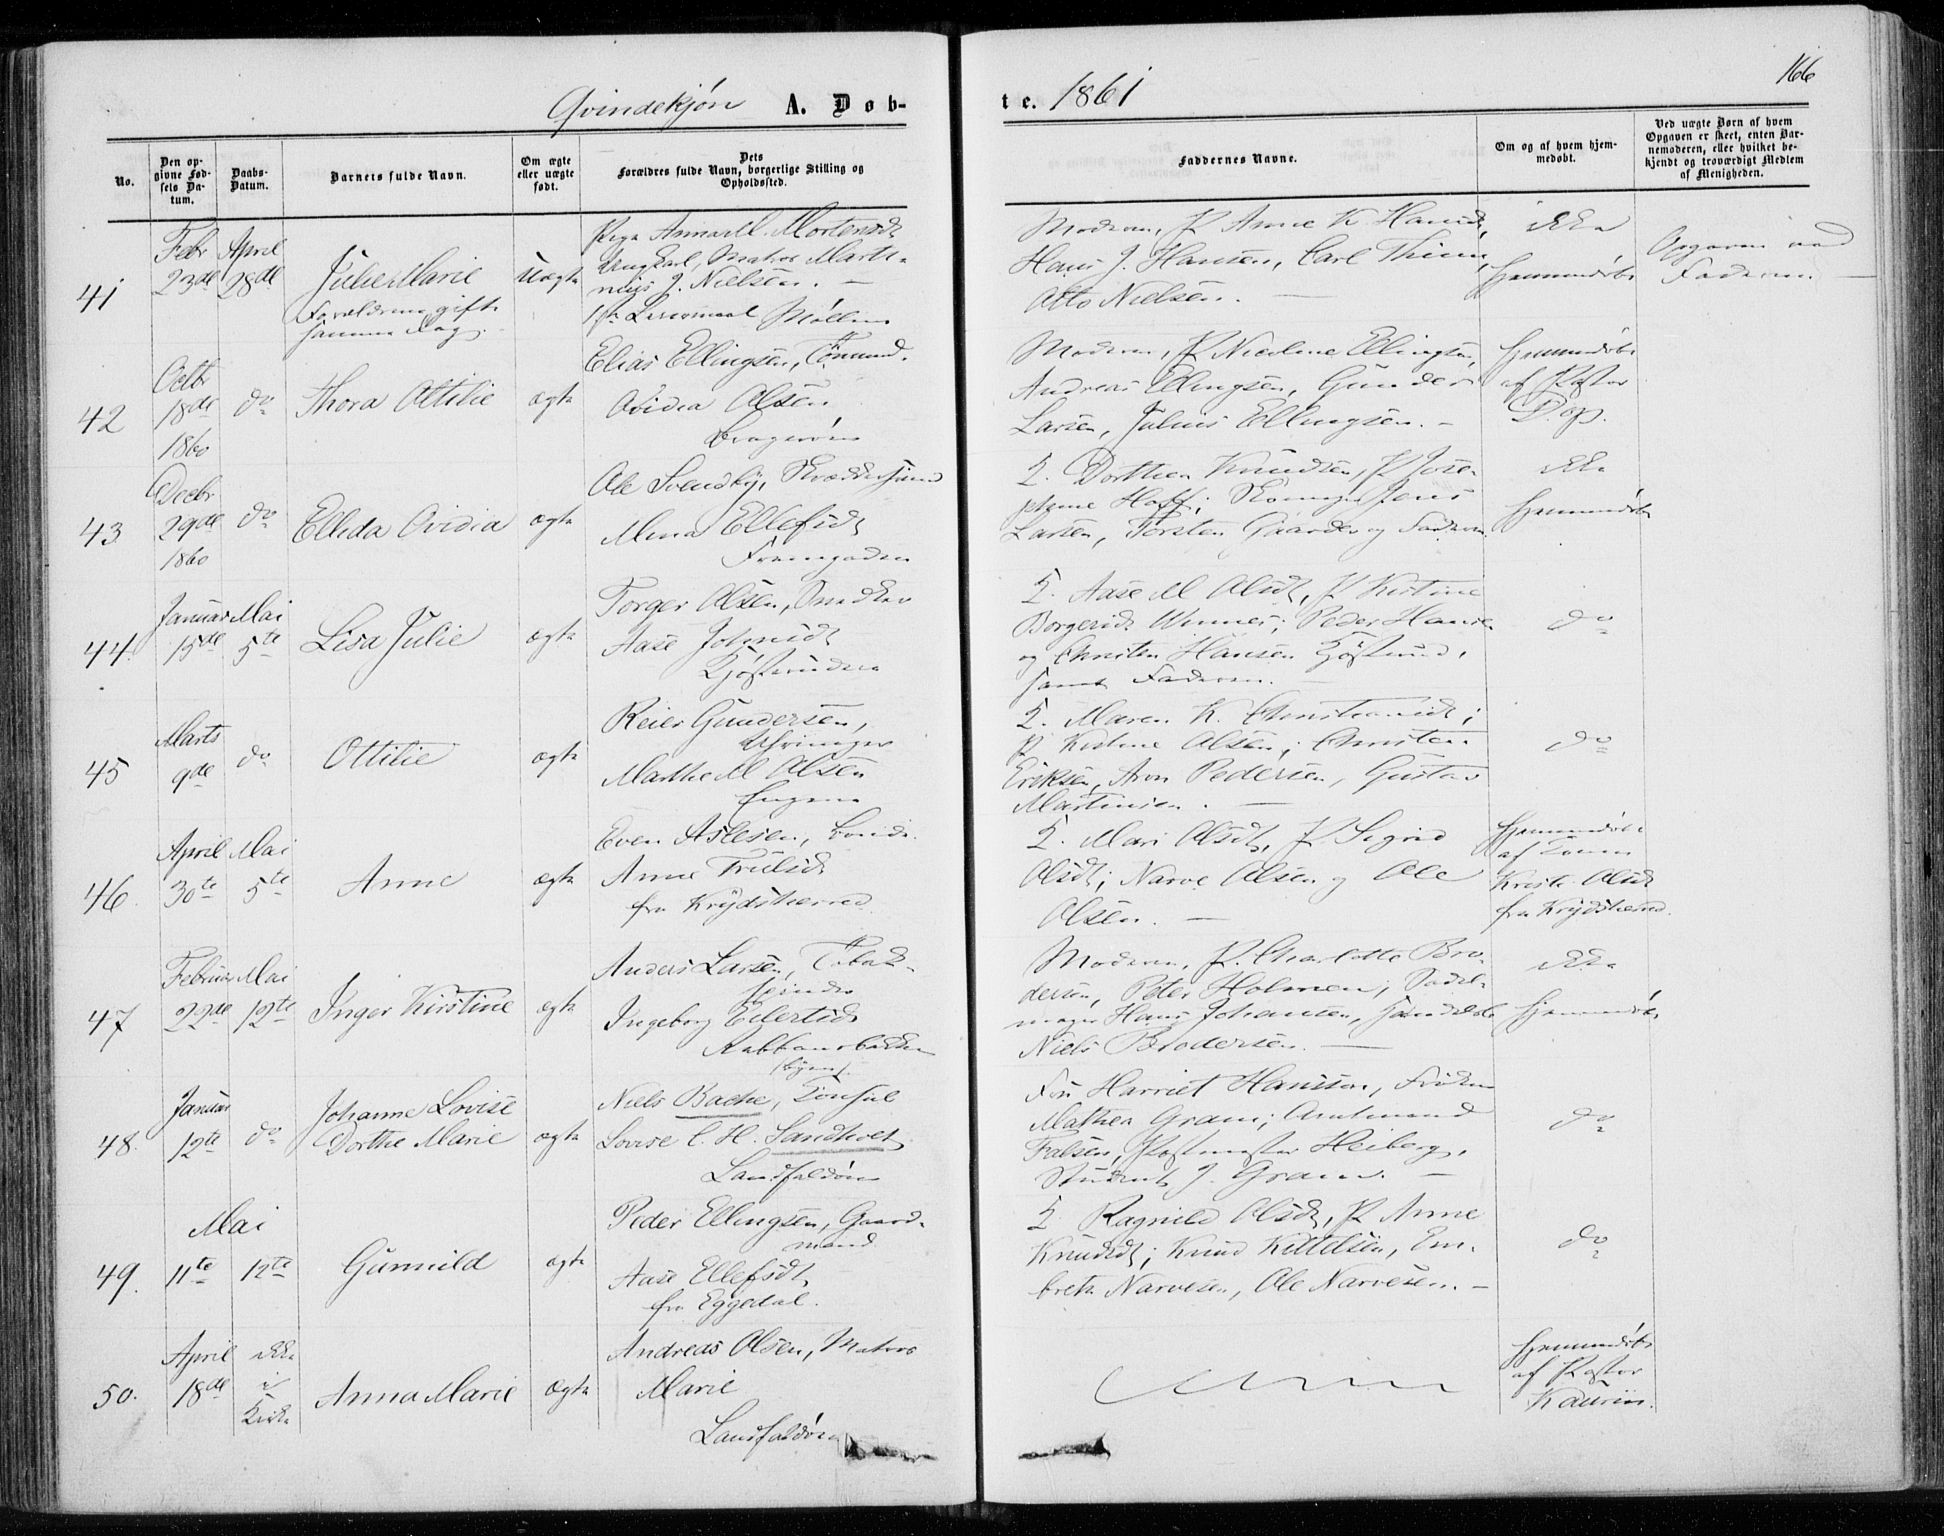 Qvindekjøn A. Døb-
te. 1861
166
No.
Den op-
givne Fød-
sels Da-
tum.
Daabs-
Datum.
Barnets fulde Navn.
Om ægte
eller uægte
født.
Dets
Forældres fulde Navn, borgerlige Stilling og
Opholdssted.
Faddernes Navne.
Om og af hvem hjem-
medøbt.
Ved uægte Børn af hvem
Opgaven er skeet, enten Bar-
nemoderen, eller hvilket be-
kjendt og troværdigt Medlem
af Menigheden.
41
Febr
23de
April
28de
Julie Marie
Forældrene gifte
samme Dag.
Uægte
Pige Anna M. Mortensdt
Ungkarl, Matros Marti-
nius J. Nielsen. —
1ste Leiermaal Møllen
Moderen, P Anne K. Hansdt,
Hans J. Hansen, Carl
Otto Nielsen. —
ikke
hjemmedøbt
Opgaven ved
Faderen. —
42
Octbr
18de
1860
do
Thora Ottilie
ægte
Elias Ellingsen, Tømmd.
Ovidia Olsen
Bragerøen
Moderen, P Nicoline Ellingsen,
Andreas Ellingsen, Gunder
Larsen, Julius Ellingsen. —
hjemmedøbt
af Pastor
Dop.
43
Decbr
29de
1860
do
Elleda Ovidia
ægte
Ole Svendby, Skræddersvend
Mina Ellefsdt
Fremgaden
K. Dorthea Knudsen, P Jose-
phine Hoff; Skomager Jens
Larsen, Torsten Gaarder og Faderen.
ikke
hjemmedøbt
44.
Januar
15de
Mai
5te
Lisa Julie
ægte
Torger Olsen, Snedker
Aase Johnsdt
Kjøsterudsen
K. Aase M Olsdt, P Kirstine
Borgersdt Winnes; Peder Hansen
og Christen Hansen Kjøsterud,
samt Faderen. —
do
45
Marts
9de
do
Ottilie
ægte
Reier Gundersen,
Marthe M Olsen
Engene
K. Maren K. Christiansdt;
P Kirstine Olsen; Christen
Eriksen, Aron Pedersen, Gustav
Martinsen. —
do
46.
April
30te
Mai
5te
Anne
ægte
Even Aslesen, Bonde.
Anne Trulsdt
fra Krydsherred
K. Mari Olsdt, P. Sigrid
Olsdt; Narve Olsen og Ole
Olsen. —
hjemmedøbt
af Konen
Kirsti Olsdt
fra Krydsherred.
47
Februar
22de
Mai
12te
Inger Kirstine
ægte
Anders Larsen, Tobak-
spinder
Ingeborg Eilertsdt
Moderen, P. Charlotte Bro-
dersen, Peter Holmen; Sadel-
mager Hans Johansen,
Niels Brodersen. —
ikke
hjemmedøbt
48.
Januar
12te
do
Johanne Lovise
Dorthe Marie
ægte
Niels Bache, Konsul
Lovise C. H. Sandholt
Landfaldøen
Fru Harriet Hanssen, Frøken
Mathea Gram; Amtmand
Falsen, Postmester Heiberg,
Student J. Gram. —
do
49.
Mai
11te
12te
Gunnild
ægte
Peder Ellingsen, Gaard-
mand
Aase Ellefsdt
fra Eggedal.
K Ragnild Olsdt, P Anne
Knudsdt; Knud Kittelsen, Em-
bret Narvesen, Ole Narvesen. —
do
50.
April
18de
ikke
i
Kirke
Anna Marie
Ægte
Andreas Olsen, Matros
Marie
Landfaldøen
hjemmedøbt
af Pastor
Kaurin.